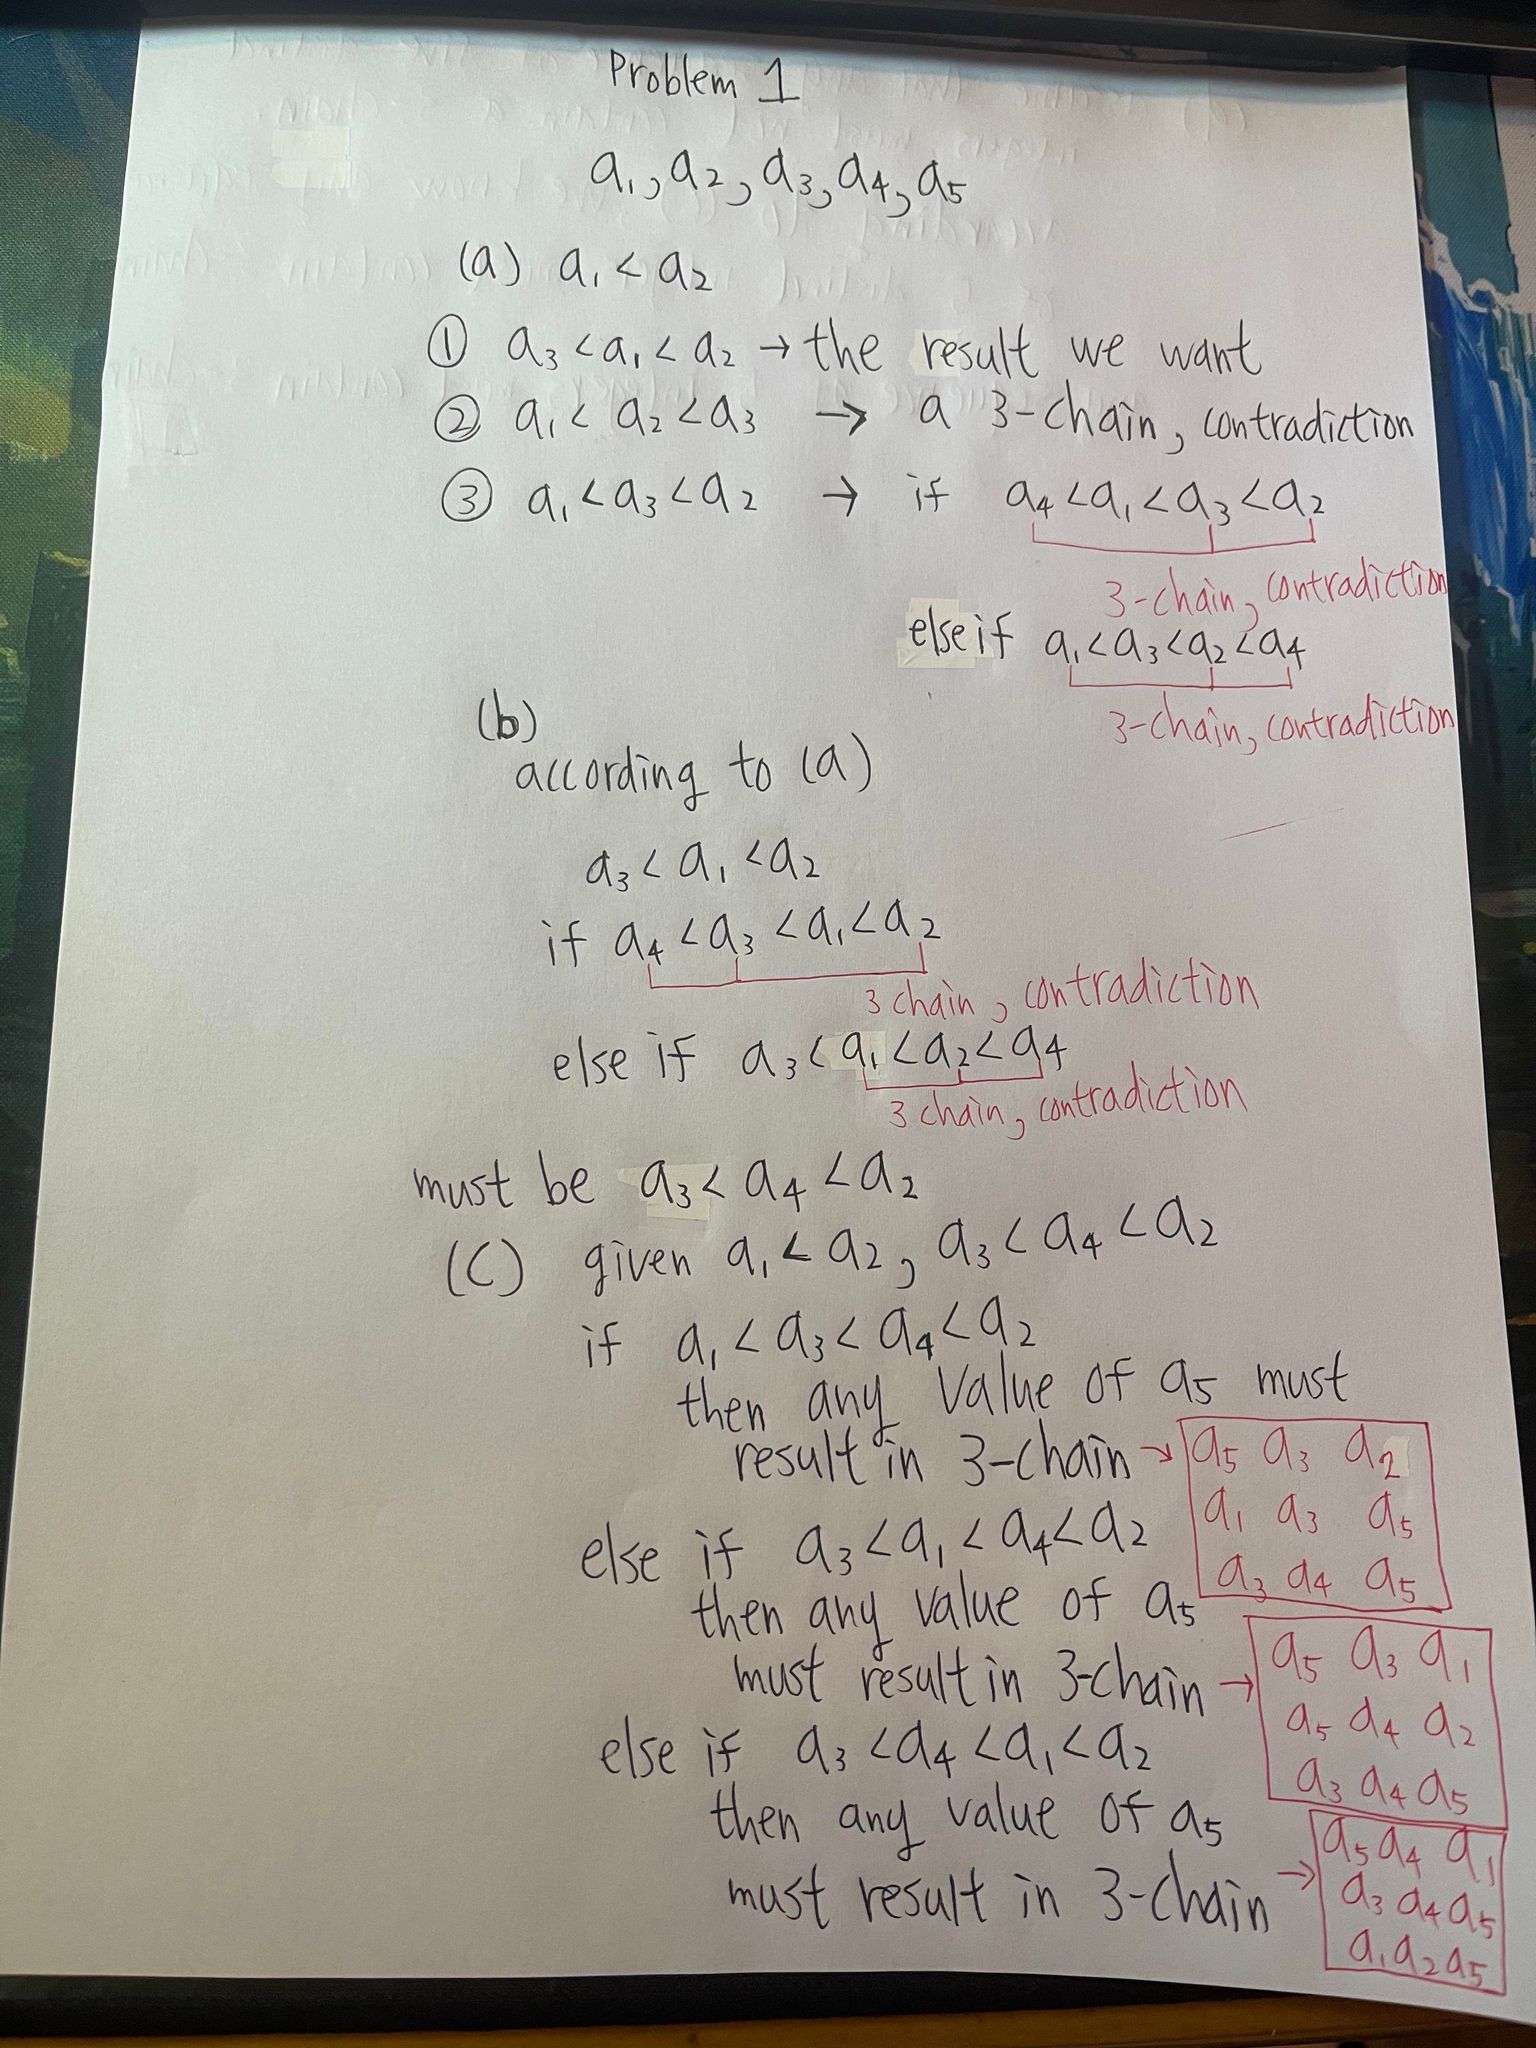 Problem 1
a₁, a₂, a₃, a₄, a₅
(a) a₁ < a₂
① a₃ < a₁ < a₂ → the result we want
② a₁ < a₂ < a₃ → a 3-chain, contradiction
③ a₁ < a₃ < a₂ → if a₄ < a₁ < a₃ < a₂
3-chain, contradiction
else if a₁ < a₃ < a₂ < a₄
3-chain, contradiction
(b)
according to (a)
a₃ < a₁ < a₂
if a₄ < a₃ < a₁ < a₂
3 chain, contradiction
else if a₃ < a₁ < a₂ < a₄
3 chain, contradiction
must be a₃ < a₄ < a₂
(C) given a₁ < a₂, a₃ < a₄ < a₂
if a₁ < a₃ < a₄ < a₂
then any value of a₅ must
result in 3-chain → a₅ a₃ a₂
a₁ a₃ a₅
a₃ a₄ a₅
else if a₃ < a₁ < a₄ < a₂
then any value of a₅
must result in 3-chain → a₅ a₃ a₁
a₅ a₄ a₂
a₃ a₄ a₅
else if a₃ < a₄ < a₁ < a₂
then any value of a₅
must result in 3-chain → a₅ a₄ a₁
a₃ a₄ a₅
a₁ a₂ a₅